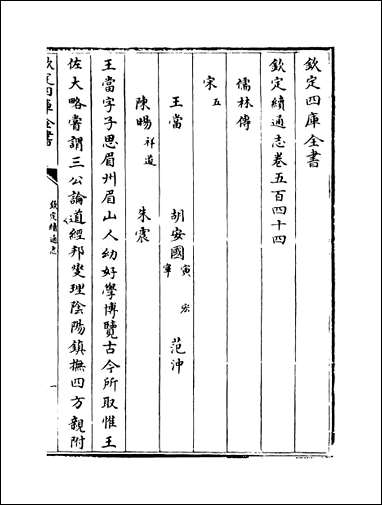 欽定四庫全書
欽定續通志卷五百四十四
儒林傳
宋 五
王當 胡安國 寅 宏 寧 范沖
陳暘 祥道 朱震
王當字子思眉州眉山人幼好學博覽古今所取惟王
佐大略嘗謂三公論道經邦燮理陰陽鎮撫四方親附
欽定四庫全書
欽定續通志
一